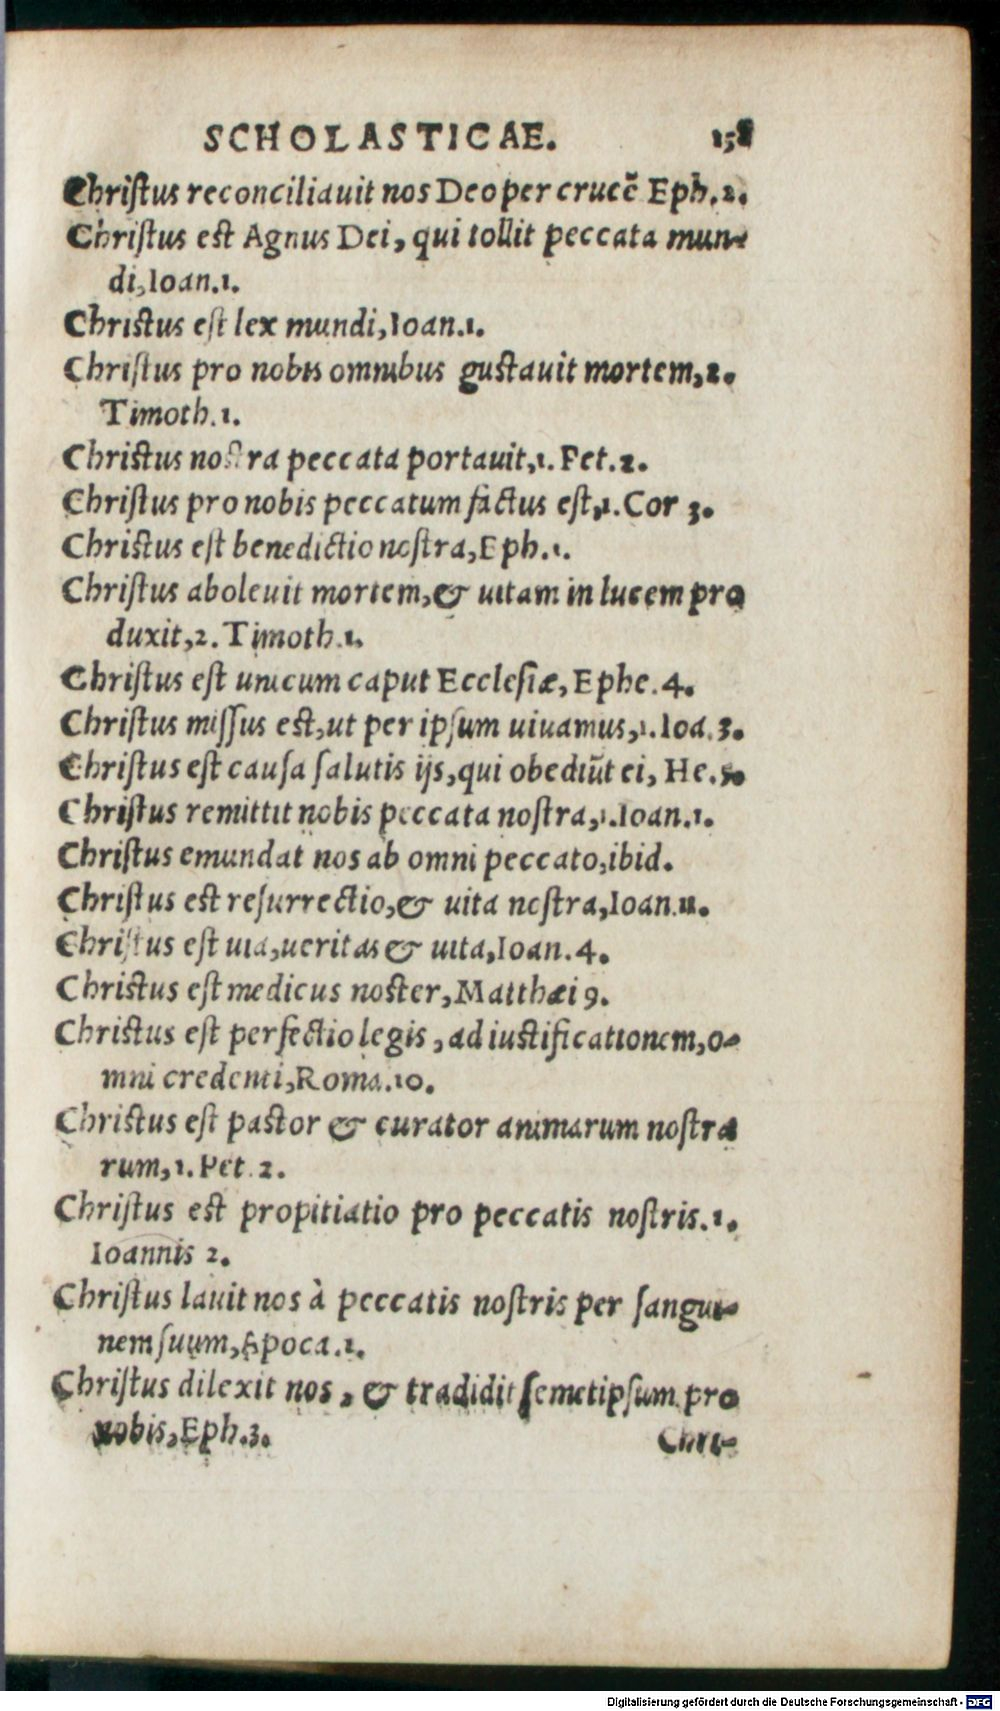 SCHOLASTICAE. 158
Christus reconciliauit nos Deo per crucē Eph.2.
Christus est Agnus Dei, qui tollit peccata mun-
di, Ioan.1.
Christus est lex mundi, Ioan.1.
Christus pro nobis omnibus gustauit mortem, 2.
Timoth.1.
Christus nostra peccata portauit, 1. Pet.2.
Christus pro nobis peccatum factus est, 1. Cor 3.
Christus est benedictio nostra, Eph.1.
Christus aboleuit mortem, & uitam in lucem pro
duxit, 2. Timoth.1.
Christus est unicum caput Ecclesiæ, Ephe.4.
Christus missus est, ut per ipsum uiuamus, 1. Ioa.3.
Christus est causa salutis ijs, qui obediūt ei, He.5.
Christus remittit nobis peccata nostra, 1. Ioan.1.
Christus emundat nos ab omni peccato, ibid.
Christus est resurrectio, & uita nostra, Ioan.11.
Christus est uia, ueritas & uita, Ioan.4.
Christus est medicus noster, Matthæi 9.
Christus est perfectio legis, ad iustificationem, o-
mni credenti, Roma.10.
Christus est pastor & curator animarum nostra
rum, 1. Pet.2.
Christus est propitiatio pro peccatis nostris. 1.
Ioannis 2.
Christus lauit nos à peccatis nostris per sangui-
nem suum, Apoca.1.
Christus dilexit nos, & tradidit semetipsum pro
nobis, Eph.3.
Chri-
Digitalisierung gefördert durch die Deutsche Forschungsgemeinschaft - DFG